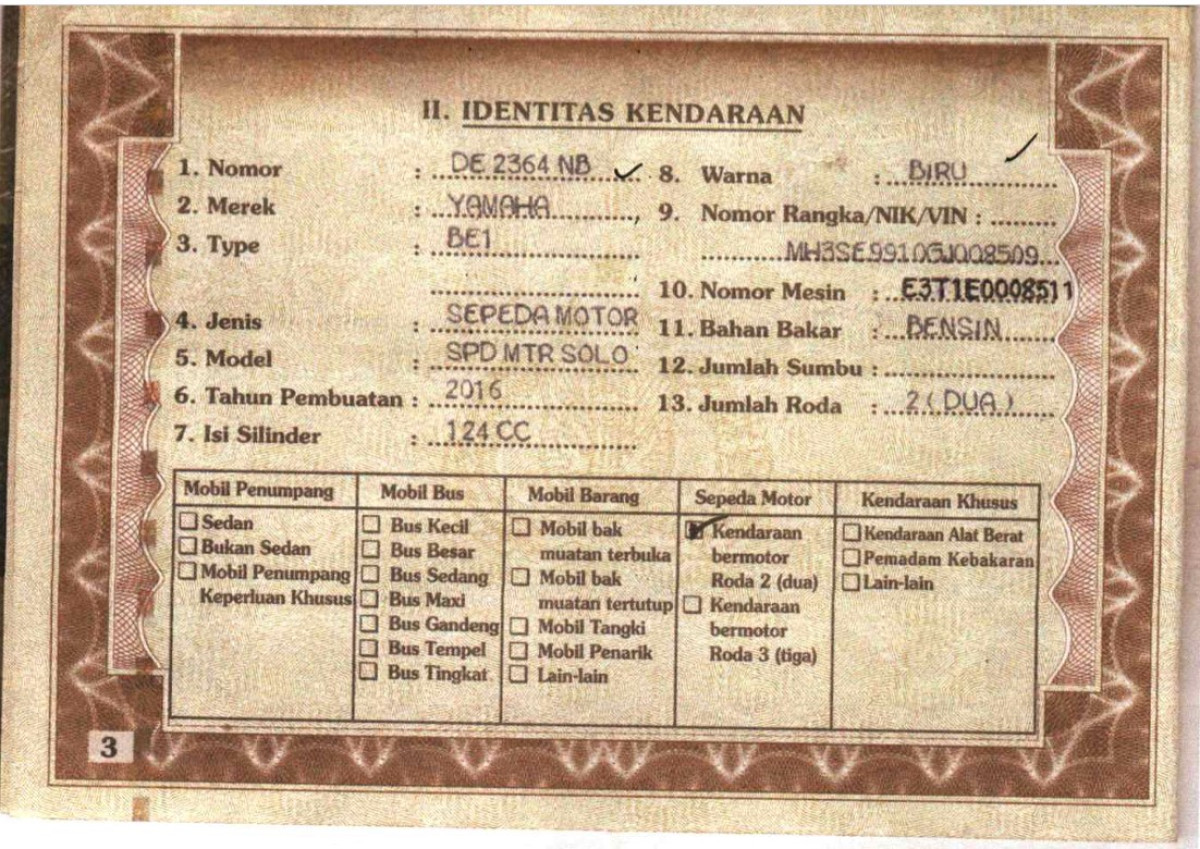 II. IDENTITAS KENDARAAN
1. Nomor : DE 2364 NB
2. Merek : YAMAHA
3. Type : BE1
4. Jenis : SEPEDA MOTOR
5. Model : SPD MTR SOLO
6. Tahun Pembuatan : 2016
7. Isi Silinder : 124 CC
8. Warna : BIRU
9. Nomor Rangka/NIK/VIN :
MH3SE9910GJ008509
10. Nomor Mesin : E3T1E0008511
11. Bahan Bakar : BENSIN
12. Jumlah Sumbu :
13. Jumlah Roda : 2 ( DUA )
Mobil Penumpang
Sedan
Bukan Sedan
Mobil Penumpang
Keperluan Khusus
Mobil Bus
Bus Kecil
Bus Besar
Bus Sedang
Bus Maxi
Bus Gandeng
Bus Tempel
Bus Tingkat
Mobil Barang
Mobil bak
muatan terbuka
Mobil bak
muatan tertutup
Mobil Tangki
Mobil Penarik
Lain-lain
Sepeda Motor
Kendaraan
bermotor
Roda 2 (dua)
Kendaraan
bermotor
Roda 3 (tiga)
Kendaraan Khusus
Kendaraan Alat Berat
Pemadam Kebakaran
Lain-lain
3